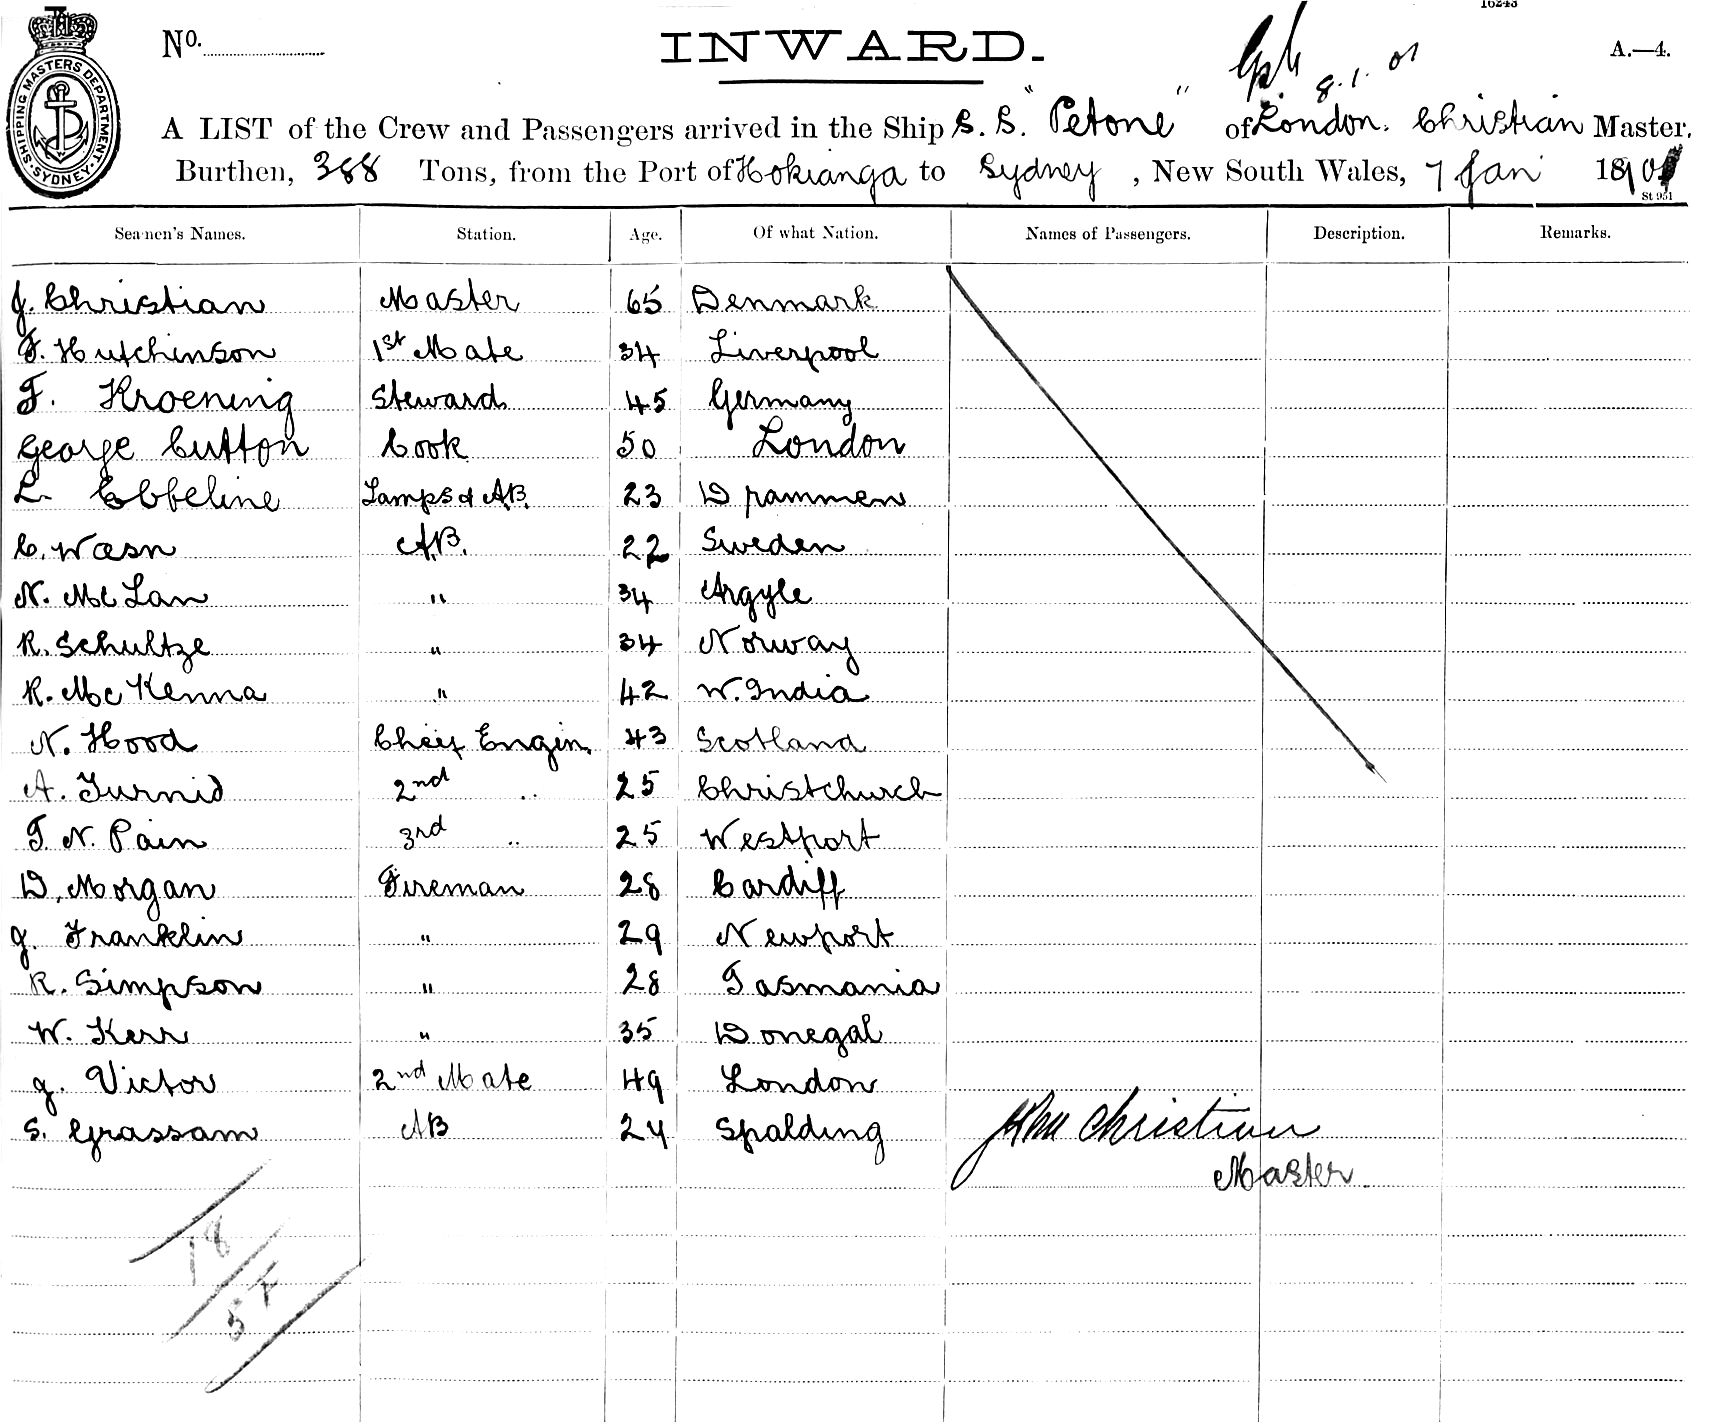 16243
No.
INWARD.
8.1.01
A.—4.
SHIPPING MASTERS DEPARTMENT. SYDNEY.
A LIST of the Crew and Passengers arrived in the Ship S.S. "Petone" of London. Christian Master,
Burthen, 388 Tons, from the Port of Hokianga to Sydney, New South Wales, 7 Jan 1901
St 951
Seamen's Names. Station. Age. Of what Nation. Names of Passengers. Description. Remarks.
J. Christian Master 65 Denmark
F. Hutchinson 1st Mate 34 Liverpool
F. Kroening Steward 45 Germany
George Cutton Cook 50 London
L. Ebbeline Lamps & AB. 23 Drammen
C. Wasn A.B. 22 Sweden
N. Mc Lan " 34 Argyle
R. Schultze " 34 Norway
R. Mc Kenna " 42 W. India
N. Hood Cheif Engin. 43 Scotland
A. Turnid 2nd " 25 Christchurch
T. N. Pain 3rd " 25 Westport
D. Morgan Fireman 28 Cardiff
J. Franklin " 29 Newport
R. Simpson " 28 Tasmania
W. Kerr " 35 Donegal
J. Victor 2nd Mate 49 London
S. Grassam AB 24 Spalding
John Christian
Master
18
5 F